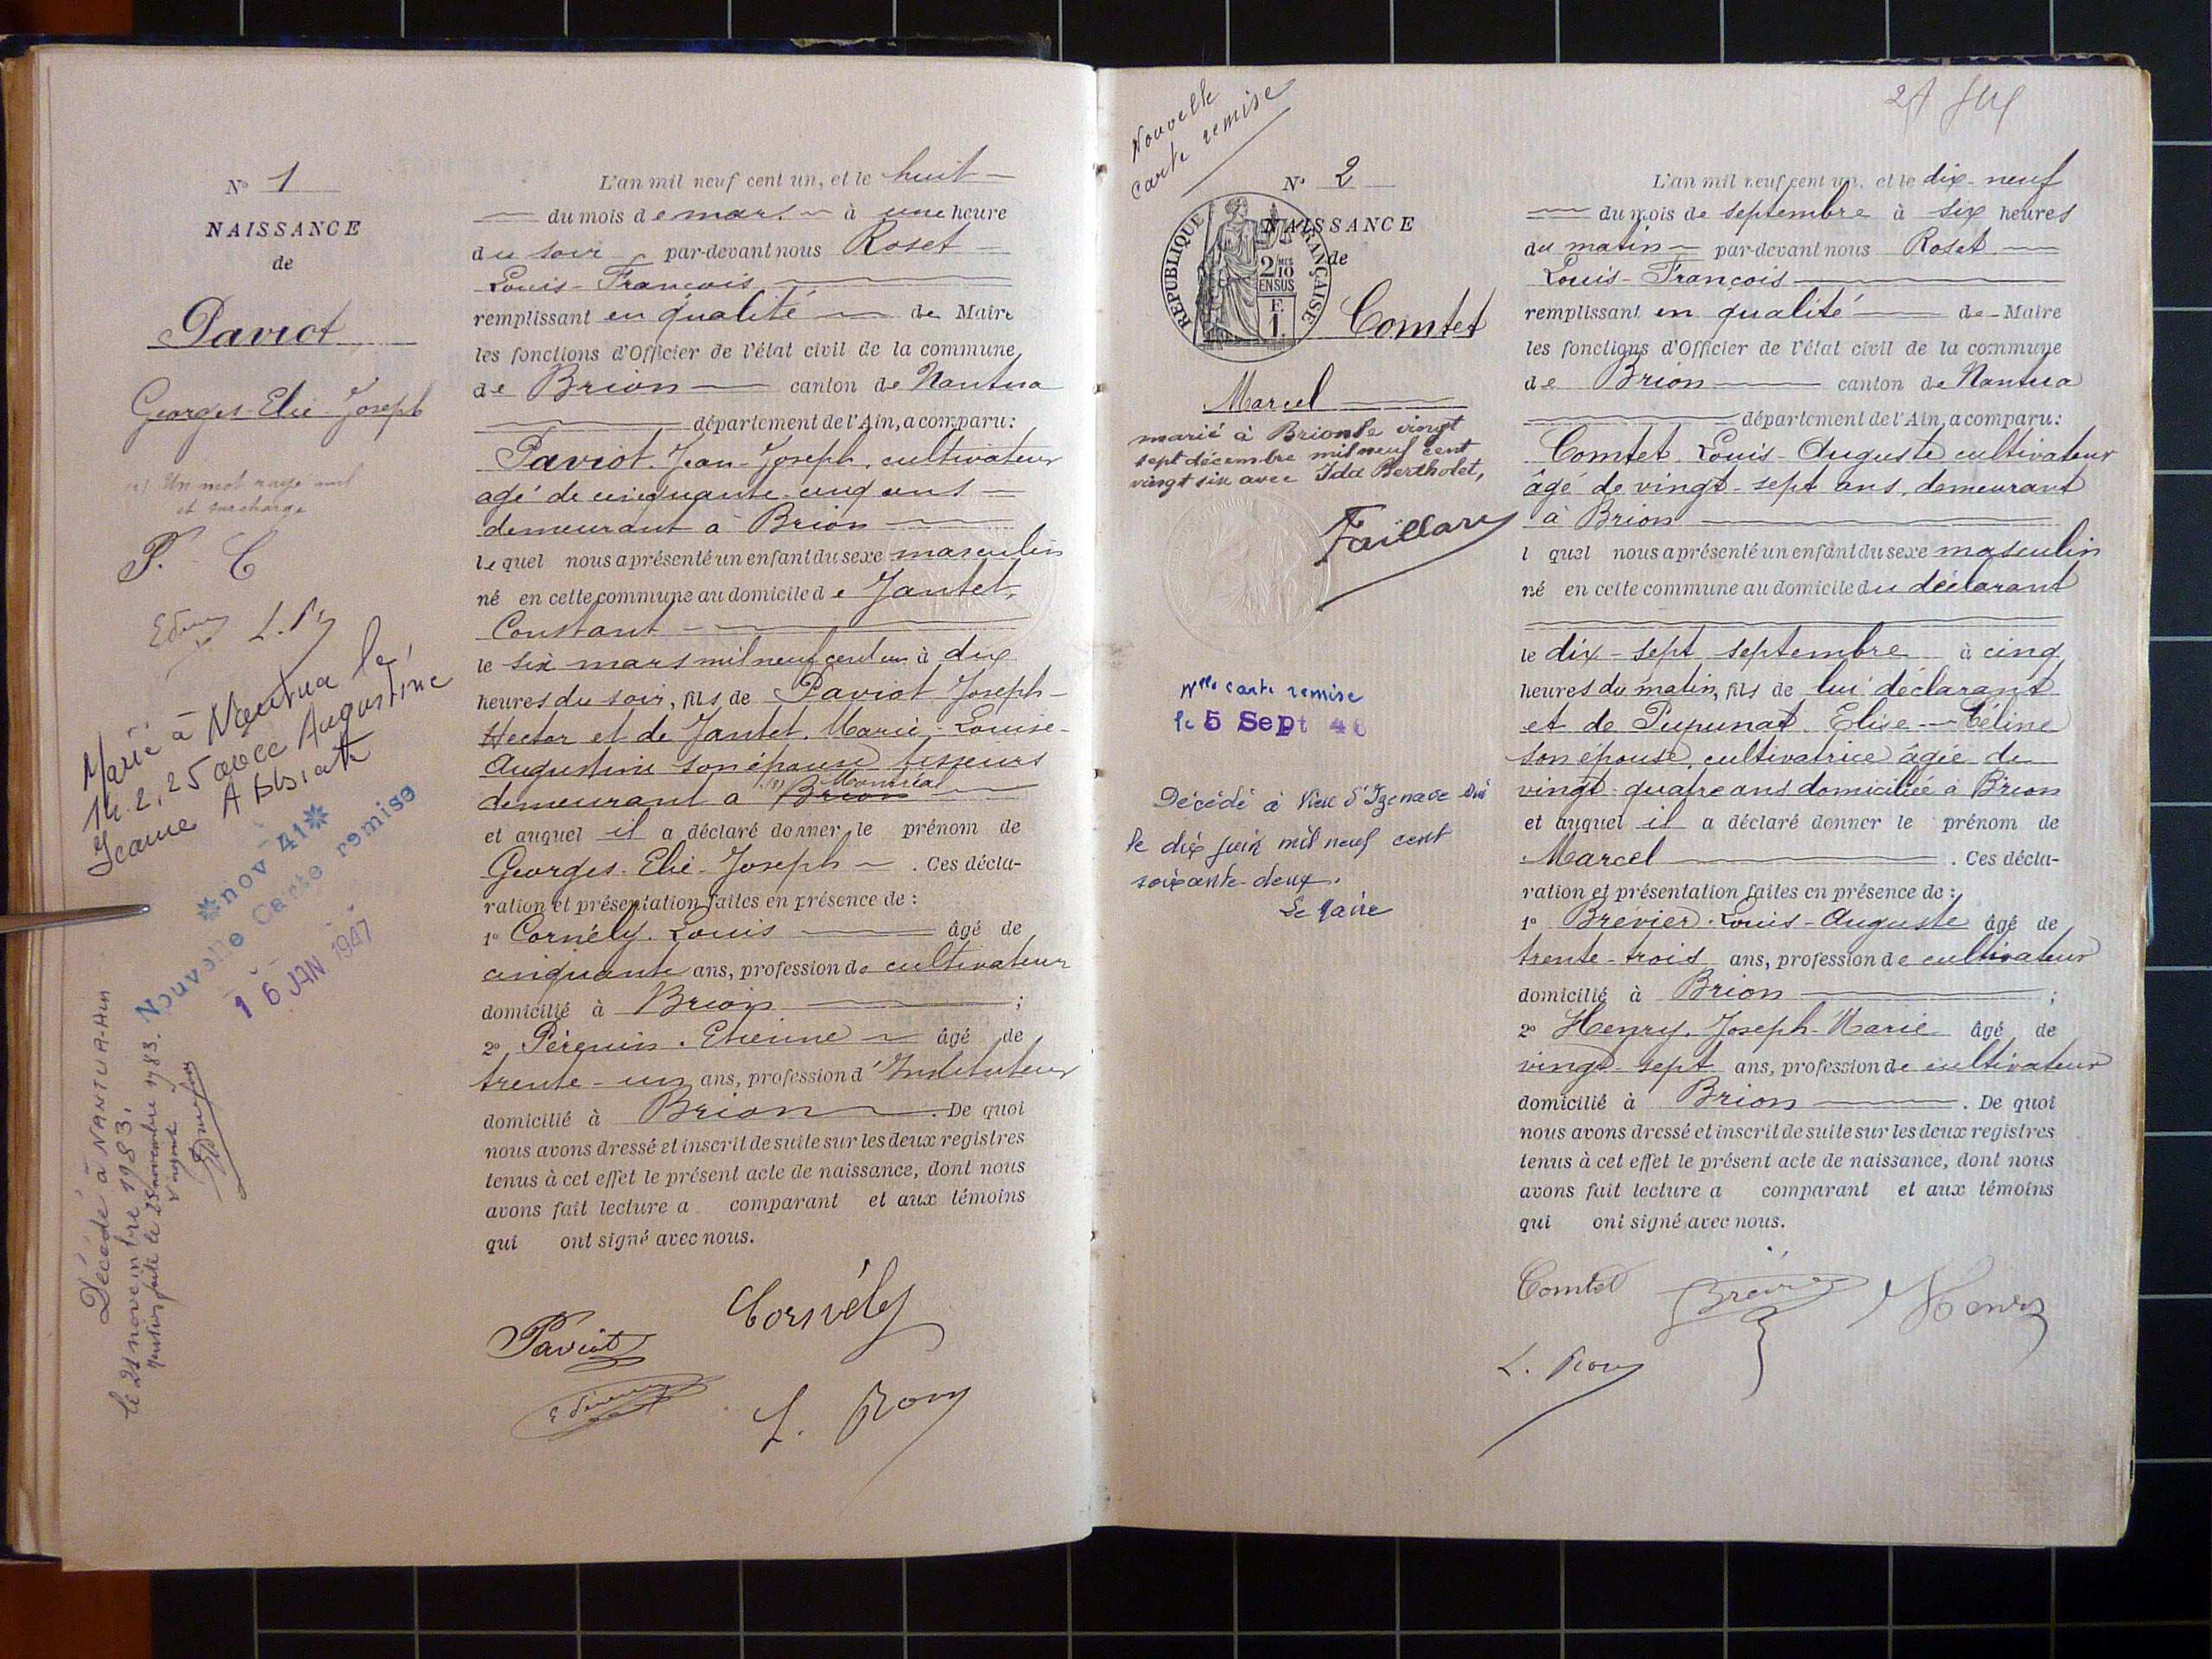 N° 1
NAISSANCE
de
Paviot
Georges-Elie-Joseph
(1) Un mot rayé nul
et surcharge
P. C
L. R
Marié à Nantua le
14.2.25 avec Augustine
Jeanne
nov 41
Nouvelle Carte remise
16 JAN 1947
Décédé à NANTUA-Ain
le 21 novembre 1983.
Mention faite le 25 novembre 1983.
L'an mil neuf cent un, et le huit
du mois de mars à une heure
du soir par-devant nous Roset
Louis-François
remplissant en qualité de Maire
les fonctions d'Officier de l'état civil de la commune
de Brion canton de Nantua
département de l'Ain, a comparu:
Paviot Jean-Joseph, cultivateur
agé de cinquante-cinq ans
demeurant à Brion
lequel nous a présenté un enfant du sexe masculin
né en cette commune au domicile de Jantet,
Constant
le six mars mil neuf cent un à dix
heures du soir, fils de Paviot Joseph-
Hector et de Jantet Marie-Louise-
Augustine son épouse tisseurs
demeurant à Brion (1) Montréal
et auquel il a déclaré donner le prénom de
Georges-Elie-Joseph . Ces décla-
ration et présentation faites en présence de :
1° Cornély Louis âgé de
cinquante ans, profession de cultivateur
domicilié à Brion ;
2° Etienne âgé de
trente-un ans, profession d'Instituteur
domicilié à Brion . De quoi
nous avons dressé et inscrit de suite sur les deux registres
tenus à cet effet le présent acte de naissance, dont nous
avons fait lecture a comparant et aux témoins
qui ont signé avec nous.
Cornély
Paviot
L.
Nouvelle
carte remise
N° 2
NAISSANCE
de
REPUBLIQUE FRANÇAISE
2 MES
10
EN SUS
F.
1.
Comtet
Marcel
marié à Brion le vingt
sept décembre mil neuf cent
vingt six avec Ida Bertholet,
Nlle carte remise
le 5 Sept 46
Décédé à Vieu d'Izenave Ain
le dix juin mil neuf cent
soixante-deux.
Le Maire
27
L'an mil neuf cent un, et le dix-neuf
du mois de septembre à six heures
du matin par-devant nous Roset
Louis-François
remplissant en qualité de Maire
les fonctions d'Officier de l'état civil de la commune
de Brion canton de Nantua
département de l'Ain, a comparu:
Comtet Louis-Auguste cultivateur
âgé de vingt-sept ans, demeurant
à Brion
l quel nous a présenté un enfant du sexe masculin
né en cette commune au domicile du déclarant
le dix-sept septembre à cinq
heures du matin, fils de lui déclarant
et de Pupunat Elise-Céline
son épouse, cultivatrice âgée de
vingt-quatre ans domiciliée à Brion
et auquel il a déclaré donner le prénom de
Marcel . Ces décla-
ration et présentation faites en présence de :
1° Brevier Louis-Auguste âgé de
trente-trois ans, profession de cultivateur
domicilié à Brion ;
2° Henry Joseph-Marie âgé de
vingt-sept ans, profession de cultivateur
domicilié à Brion . De quoi
nous avons dressé et inscrit de suite sur les deux registres
tenus à cet effet le présent acte de naissance, dont nous
avons fait lecture a comparant et aux témoins
qui ont signé avec nous.
Comtet Henry
L.